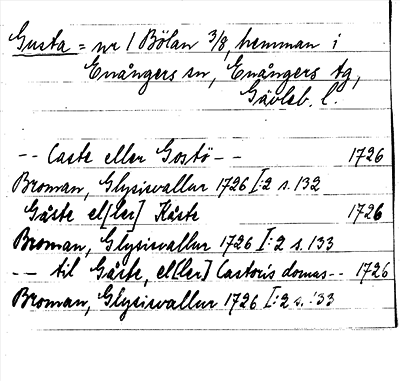 Gusta = nr 1 Bölan 3/8, hemman i
Enångers sn, Enångers tg,
Gävleb. l.
-- Caste eller Gostö -- 1726
Broman, Glysisvallur 1726 I:2 s. 132
Gåste el[ler] Kåste 1726
Broman, Glysisvallur 1726 I:2 s. 133
-- til Gåste, el[ler] Castoris domus -- 1726
Broman, Glysisvallur 1726 I:2 s. 133